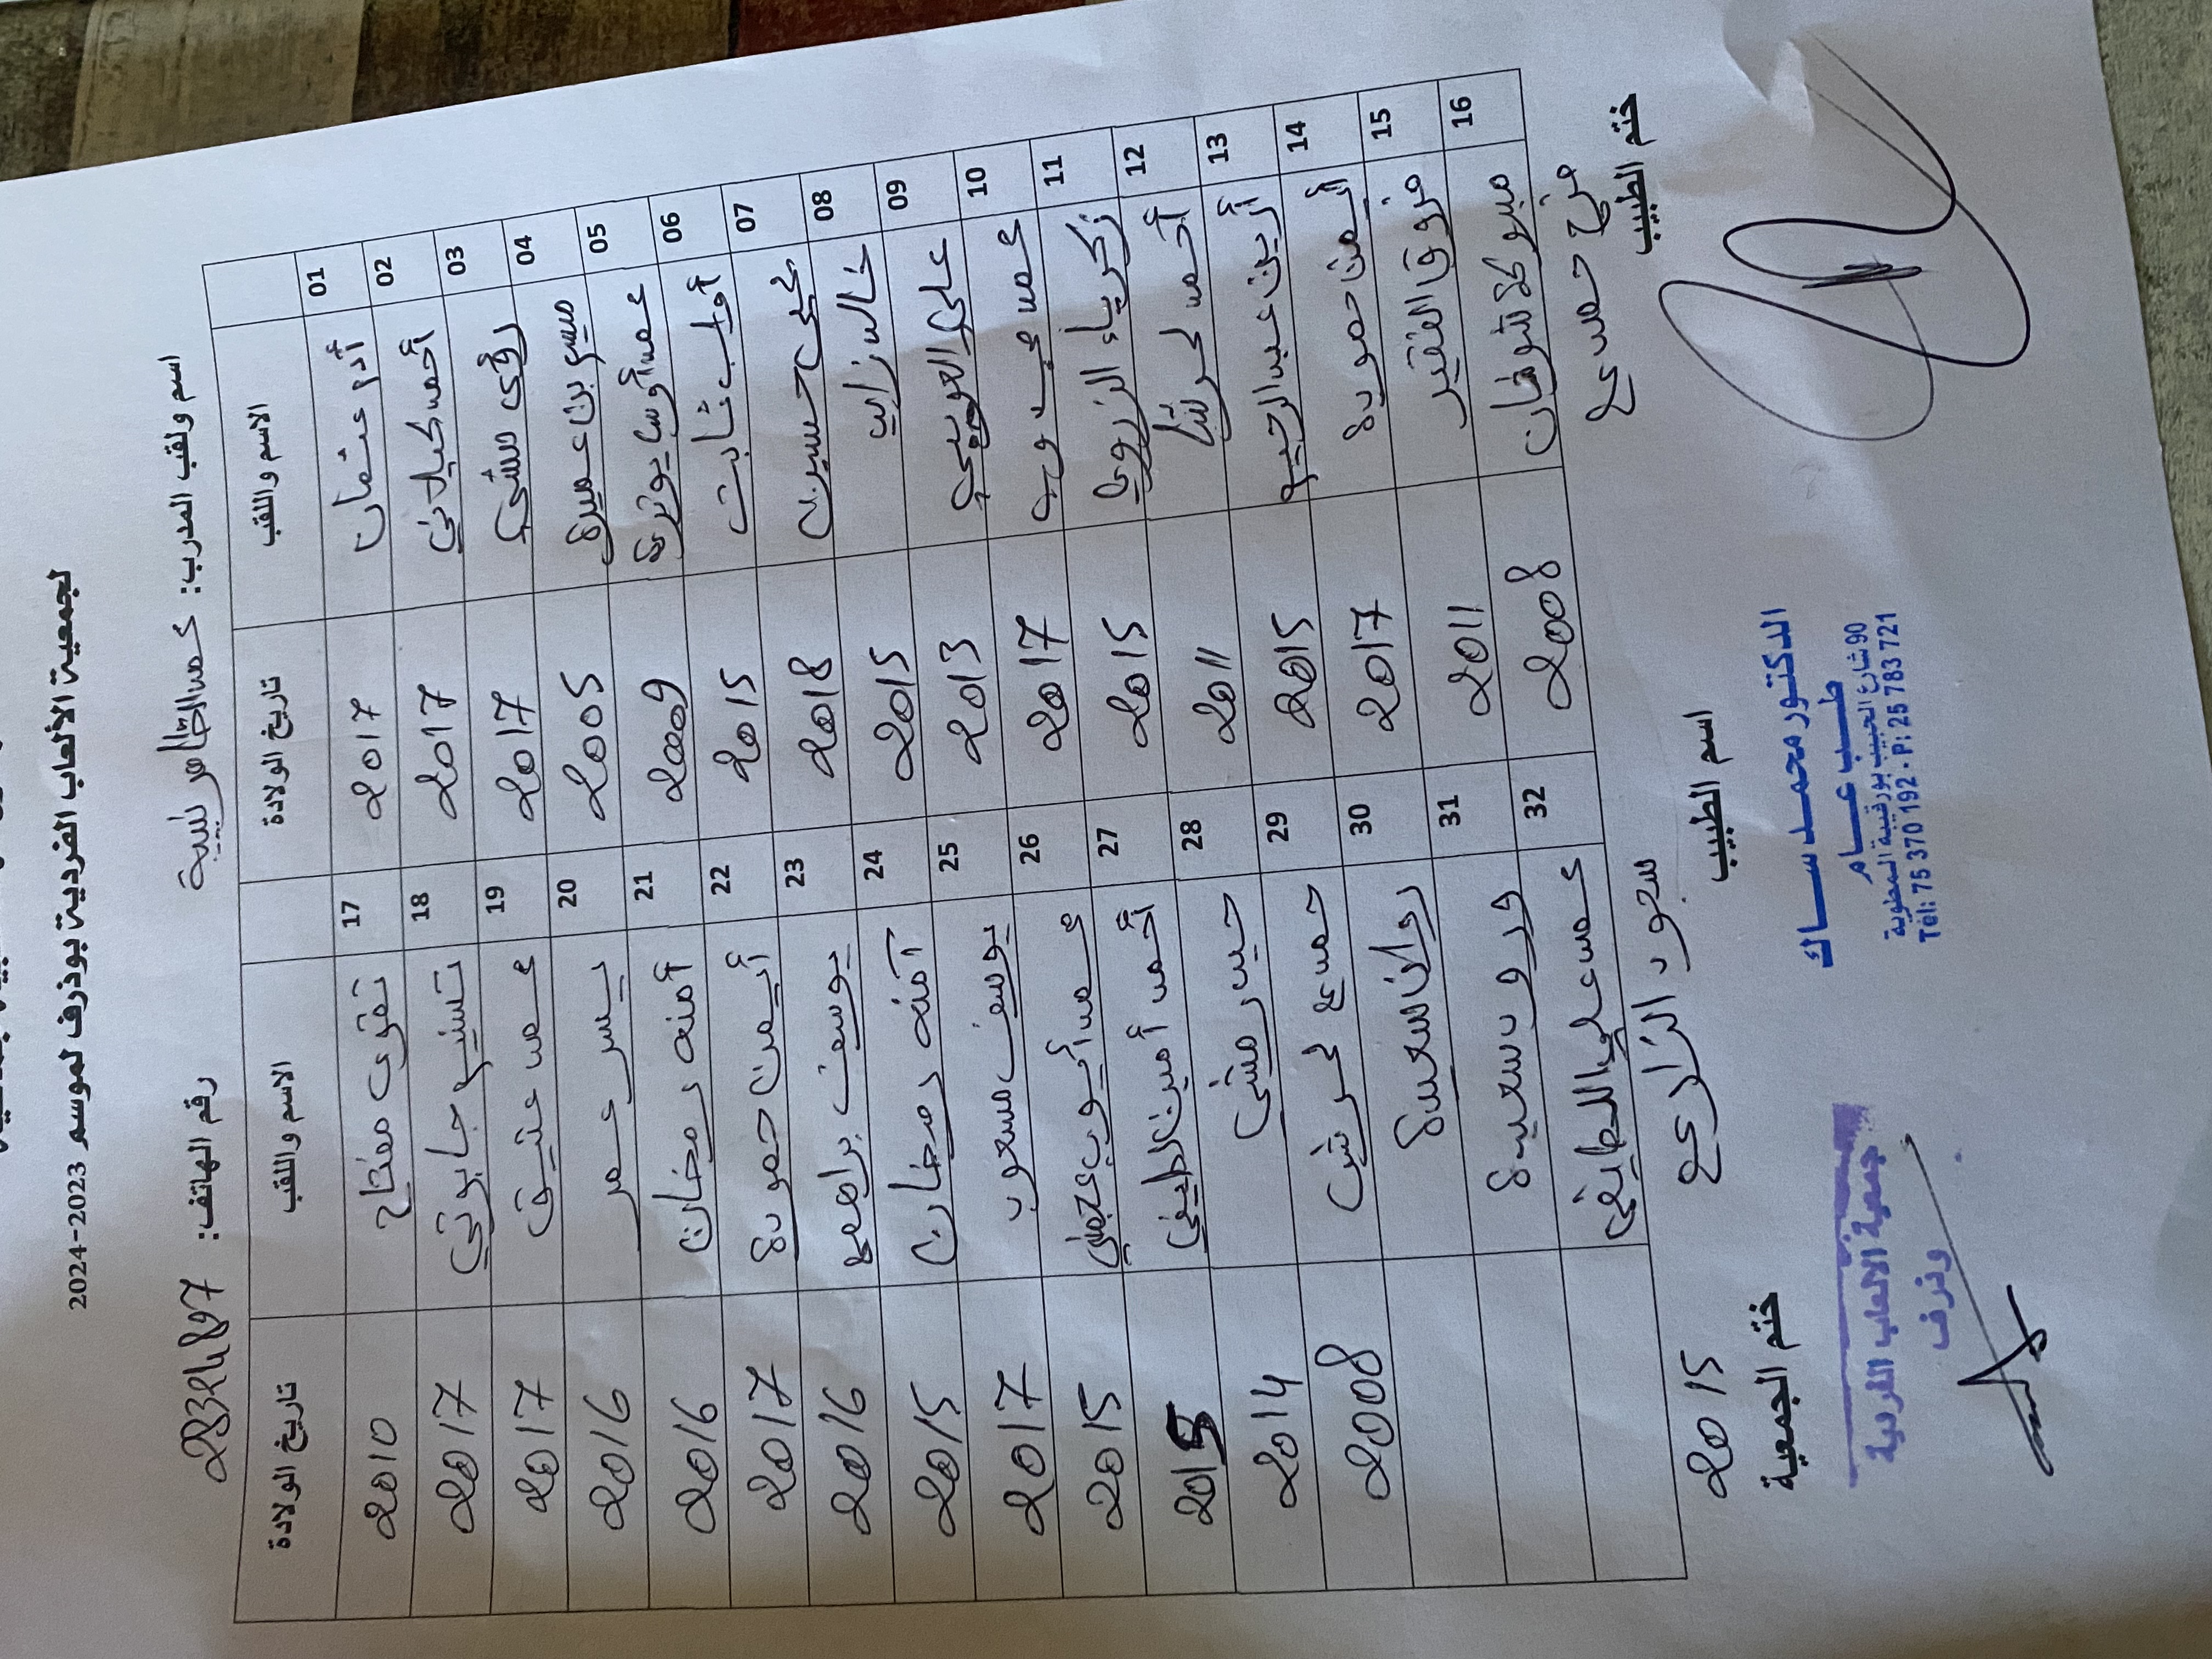 لجمعية الألعاب الفردية بوذرف لموسم 2023-2024
اسم ولقب المدرب: محمد الطاهر لبيبة رقم الهاتف: 28324897
الاسم واللقب تاريخ الولادة الاسم واللقب تاريخ الولادة
01 أدم عثمان 2017 17 تقوى مفتاح 2010
02 أحمد كيلاني 2017 18 تسنيم جابوتي 2017
03 2017 19 محمد عتيق 2017
04 ميسم بن عميرة 2005 20 يسر عمر 2016
05 محمد أوس 2009 21 أمنه رمضان 2016
06 أواب ثابت 2015 22 أيمن حمودة 2017
07 يحيى حسين 2018 23 يوسف براهم 2016
08 خالد زايد 2015 24 آمنه رمضان 2015
09 علي 2013 25 يوسف مسعود 2017
10 محمد 2017 26 محمد أيوب عجمي 2015
11 زكرياء الزروي 2015 27 أحمد أمين اللطيفي 2015
12 أحمد لحرش 2011 28 حيدر مشي 2014
13 أرين عبد الرحيم 2015 29 محمد لحرش 2008
14 أيمن حمودة 2017 30 روان سعيدة
15 مرزوق الفقير 2011 31 ورد سعيدة
16 2008 32 محمد علي اللطيفي
فرح محمد الزارعي 2015
ختم الطبيب اسم الطبيب ختم الجمعية
الدكتور محمد ساك
طب عام
90 شارع الحبيب بورقيبة المطوية
Tél: 75 370 192 - P: 25 783 721
جمعية الالعاب الفردية
وذرف